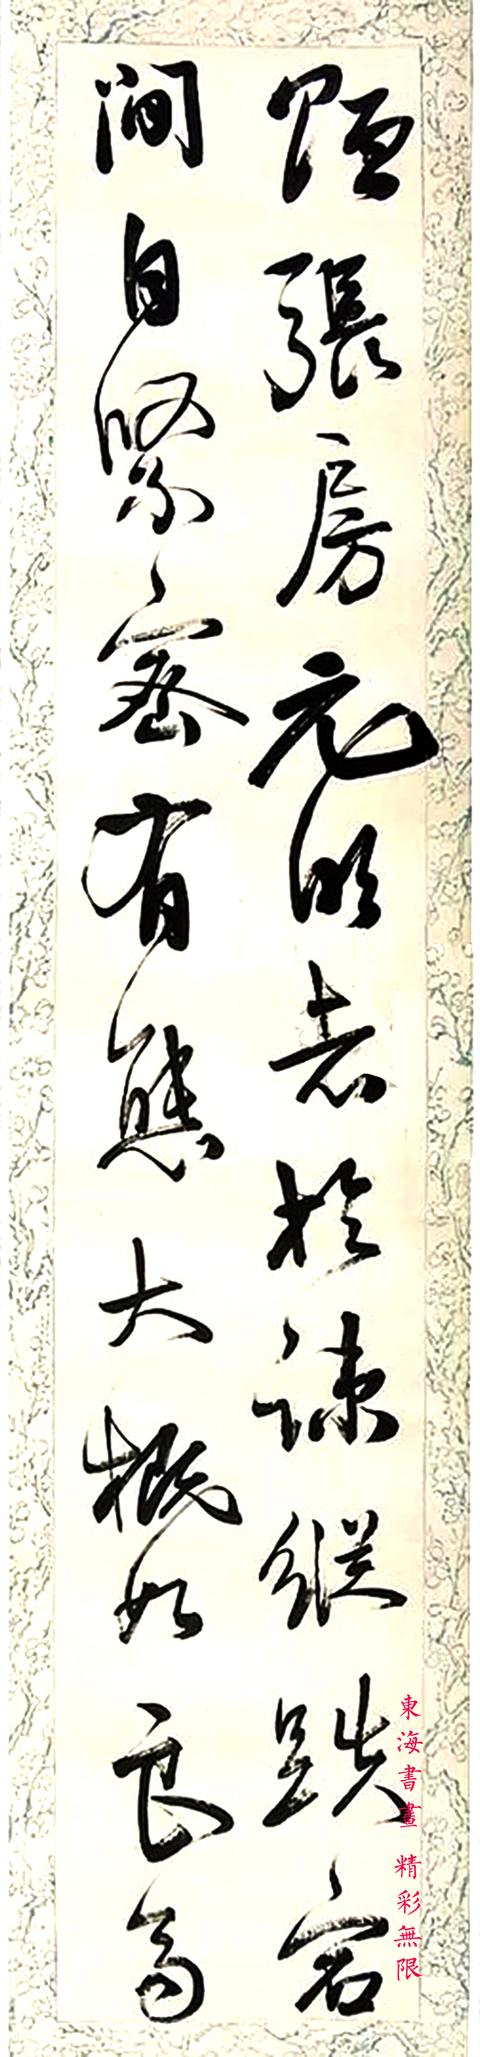 張房元明者於疎縱跌宕
間自緊密有態大概如良
東海書畫 精彩無限